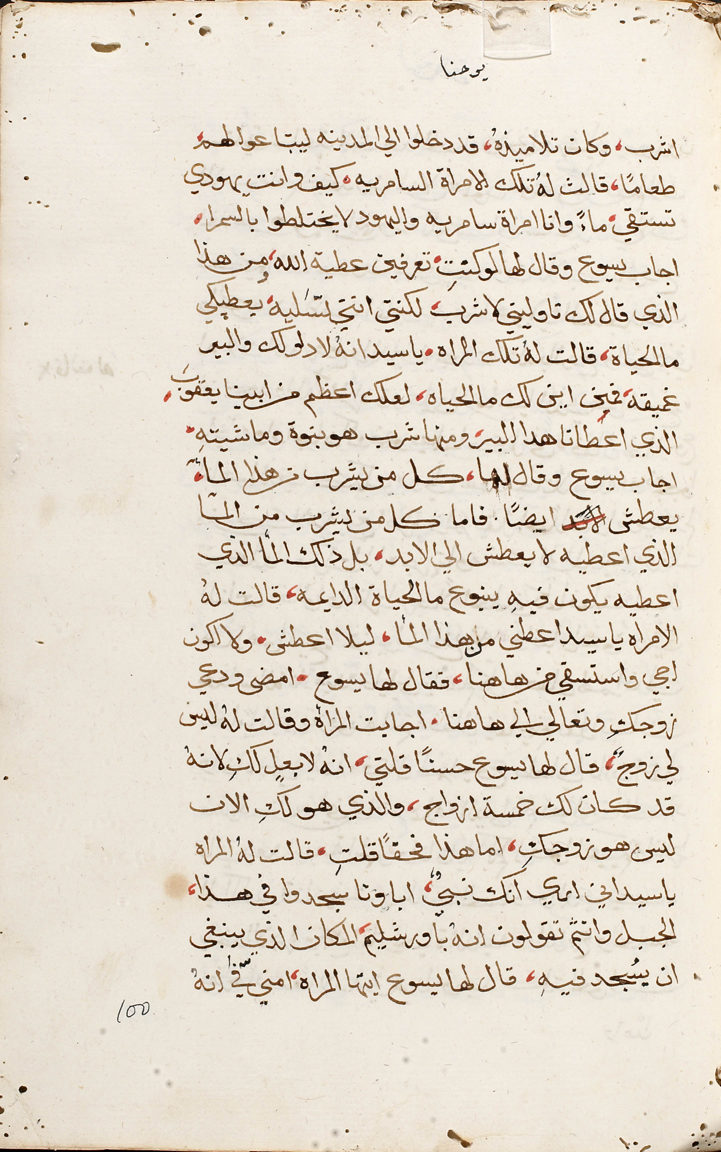 يوحنا
اشرب، وكان تلاميذهُ، قد دخلوا الي المدينه ليبتاعوا لهم،
طعامًا، قالت لهُ تلك الامراة السامريه، كيف وانت يهودي
تستقي، ماءً وانا امراة سامريه واليهود لا يختلطوا بالسمرا،
اجاب يسوع وقال لها لو كنتِ، تعرفين عطية الله، ومن هذا
الذي قال لك ناوليني لاشرب، لكنتي انتي تسَليهُ، يعطيكي
ما الحياة، قالت لهُ تلك المراه، ياسيد انهُ لا دلو لك والبير
غميقه، فمِن اين لك ما الحياه، لعلك اعظم من ابينا يعقوبَ،
الذي اعطانا هدا البير، ومنها شرب هو بنوة وماشيتهِ،
اجاب يسوع وقال لها، كل من يشرب من هذا المآء،
يعطش ايضًا. فاما كل من يشرب من المآ
الذي اعطيه لا يعطش الي الابد، بل ذلك المأ الذي
اعطيه يكون فيهِ ينبوع ما الحياة الدايمه، قالت لهُ
الامراه ياسيد اعطني من هذا المأ، ليلا اعطش، ولا اكون
اجي واستسقي من هاهنا، فقال لها يسوع، امضي ودعي
زوجكِ وتعالي الي هاهنا، اجابت المراة وقالت لهُ ليس
لي زوجٌ، قال لها يسوع حسنًا قلتي، انهُ لا بعل لكِ لانهُ
قد كان لك خمسة ازواج، والذي هو لكِ الان
ليس هو زوجكِ، اما هذا فحقًا قلتِ، قالت لهُ المراه
ياسيد اني اري انك نبيٌ، اباونا سجدوا في هذا،
الجبل وانتم تقولون انهُ باورشليم المكان الذي ينبغي
ان يسُجد فيهِ، قال لها يسوع ايتها المراه، امني فيَّ انهُ
100